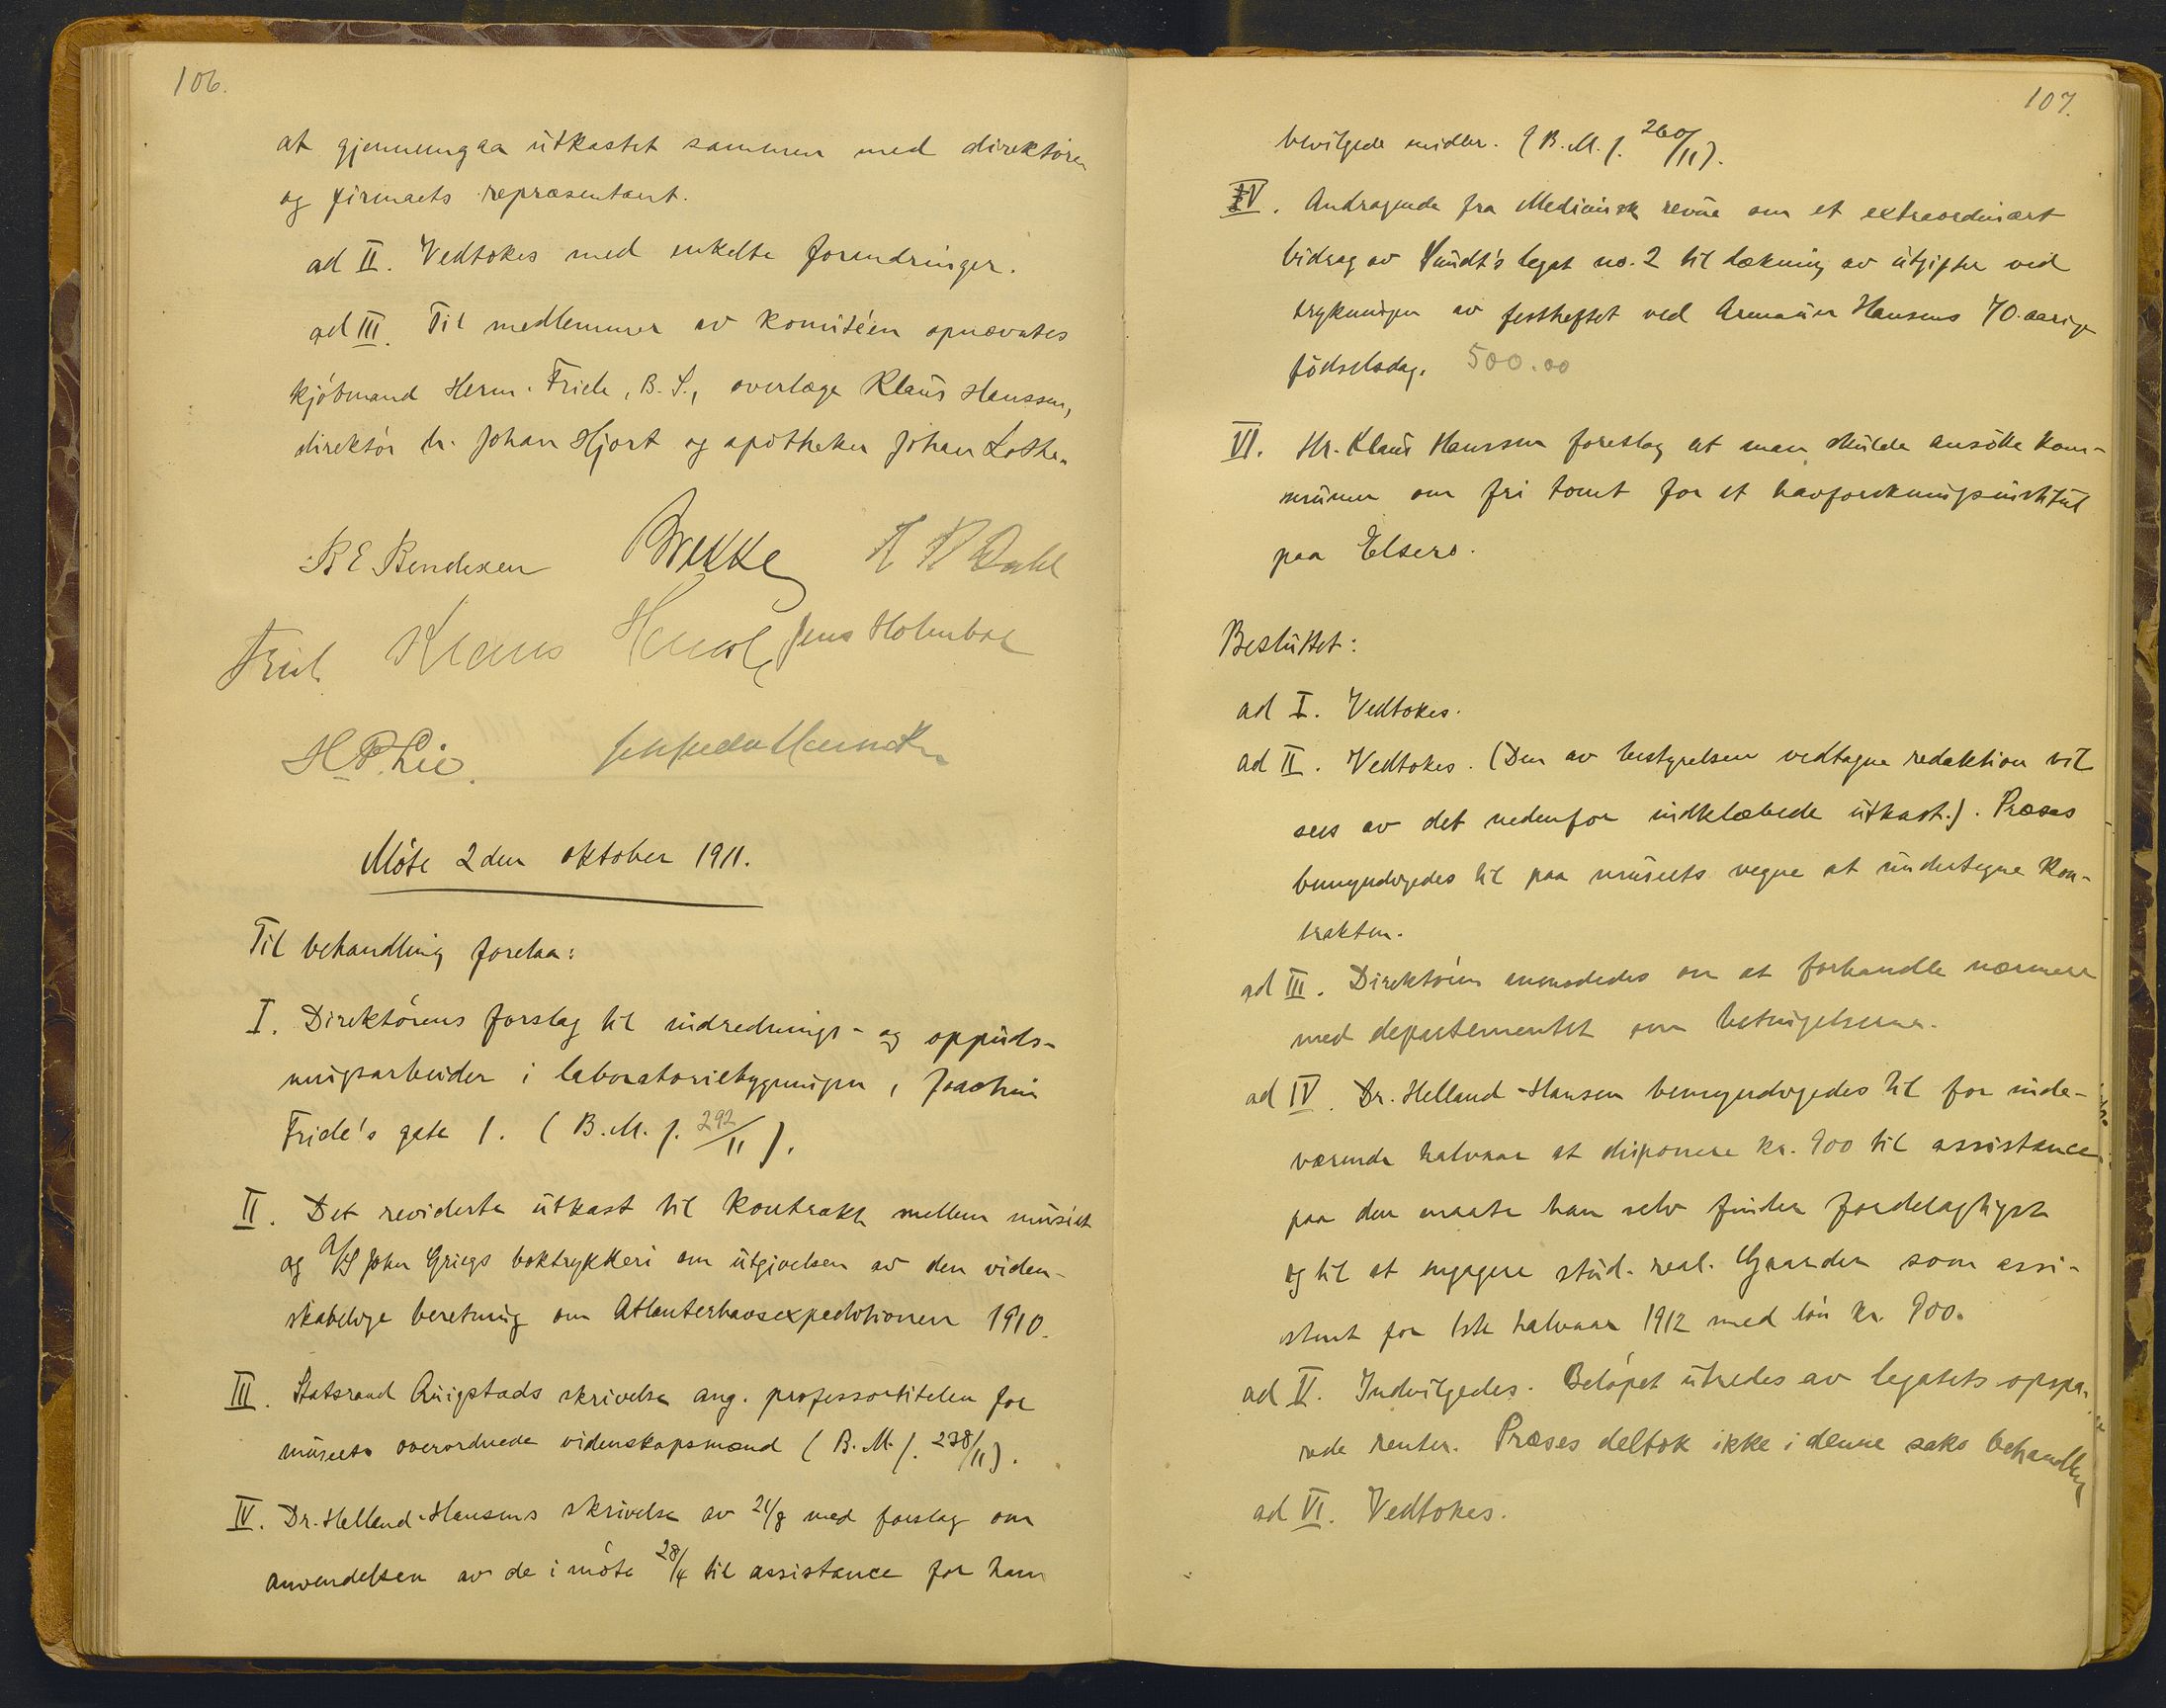 106.
at gjennemgaa utkastet sammen med direktøren
og firmaets repræsentant.
ad II. Vedtokes med enkelte forandringer.
ad III. Til medlemmer av komitéen opnævntes
kjøbmand Herm. Friele, B. S., overlæge Klaus Hanssen,
direktør dr. Johan Hjort og apotheker Johan Lothe.
B E Bendixen Brekke Dahl
Friele Klaus Hanssen Jens Holmboe
H. P. Lie.
Møte 2den oktober 1911.
Til behandling forelaa:
I. Direktørens forslag til indrednings- og oppuds-
ningsarbeider i laboratoriebygningen, Joachim
Friele's gate 1. (B.M. j. 292/11).
II. Det reviderte utkast til kontrakt mellem museet
og A/S John Griegs boktrykkeri om utgivelsen av den viden-
skabelige beretning om Atlanterhavsexpeditionen 1910.
III. Statsraad Qvigstads skrivelse ang. professortitelen for
museets overordnede videnskapsmænd (B.M. j. 238/11).
IV. Dr. Helland-Hansens skrivelse av 21/8 med forslag om
anvendelsen av de i møte 28/4 til assistance for ham
107.
bevilgede midler. (B.M. j. 260/11).
V. Andragende fra Medicinsk revue om et extraordinært
bidrag av Sundt's legat no. 2 til dækning av utgifter ved
trykningen av festheftet ved Armauer Hansens 70-aarige
fødselsdag. 500.00
VI. Hr. Klaus Hanssen foreslog at man skulde ansøke kom-
munen om fri tomt for et havforskningsinstitut
paa Elsero.
Besluttet:
ad I. Vedtokes.
ad II. Vedtokes. (Den av bestyrelsen vedtagne redaktion vil
sees av det nedenfor indklæbede utkast.). Præses
bemyndigedes til paa museets vegne at undertegne kon-
trakten.
ad III. Direktøren anmodedes om at forhandle nærmere
med departementet om betingelserne.
ad IV. Dr. Helland-Hansen bemyndigedes til for inde-
værende halvaar at disponere kr. 900 til assistance
paa den maate han selv finder fordelagtigst
og til at engagere stud. real. Gaarder som assi-
stent for 1ste halvaar 1912 med løn kr. 900.
ad V. Indvilgedes. Beløpet utredes av legatets opspa-
rede renter. Præses deltok ikke i denne saks behandling
ad VI. Vedtokes.